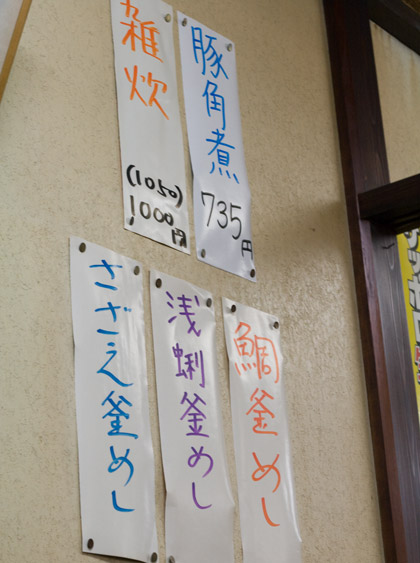 豚角煮
735円
雑炊
(1050)
1000円
鯛釜めし
浅蜊釜めし
さざえ釜めし